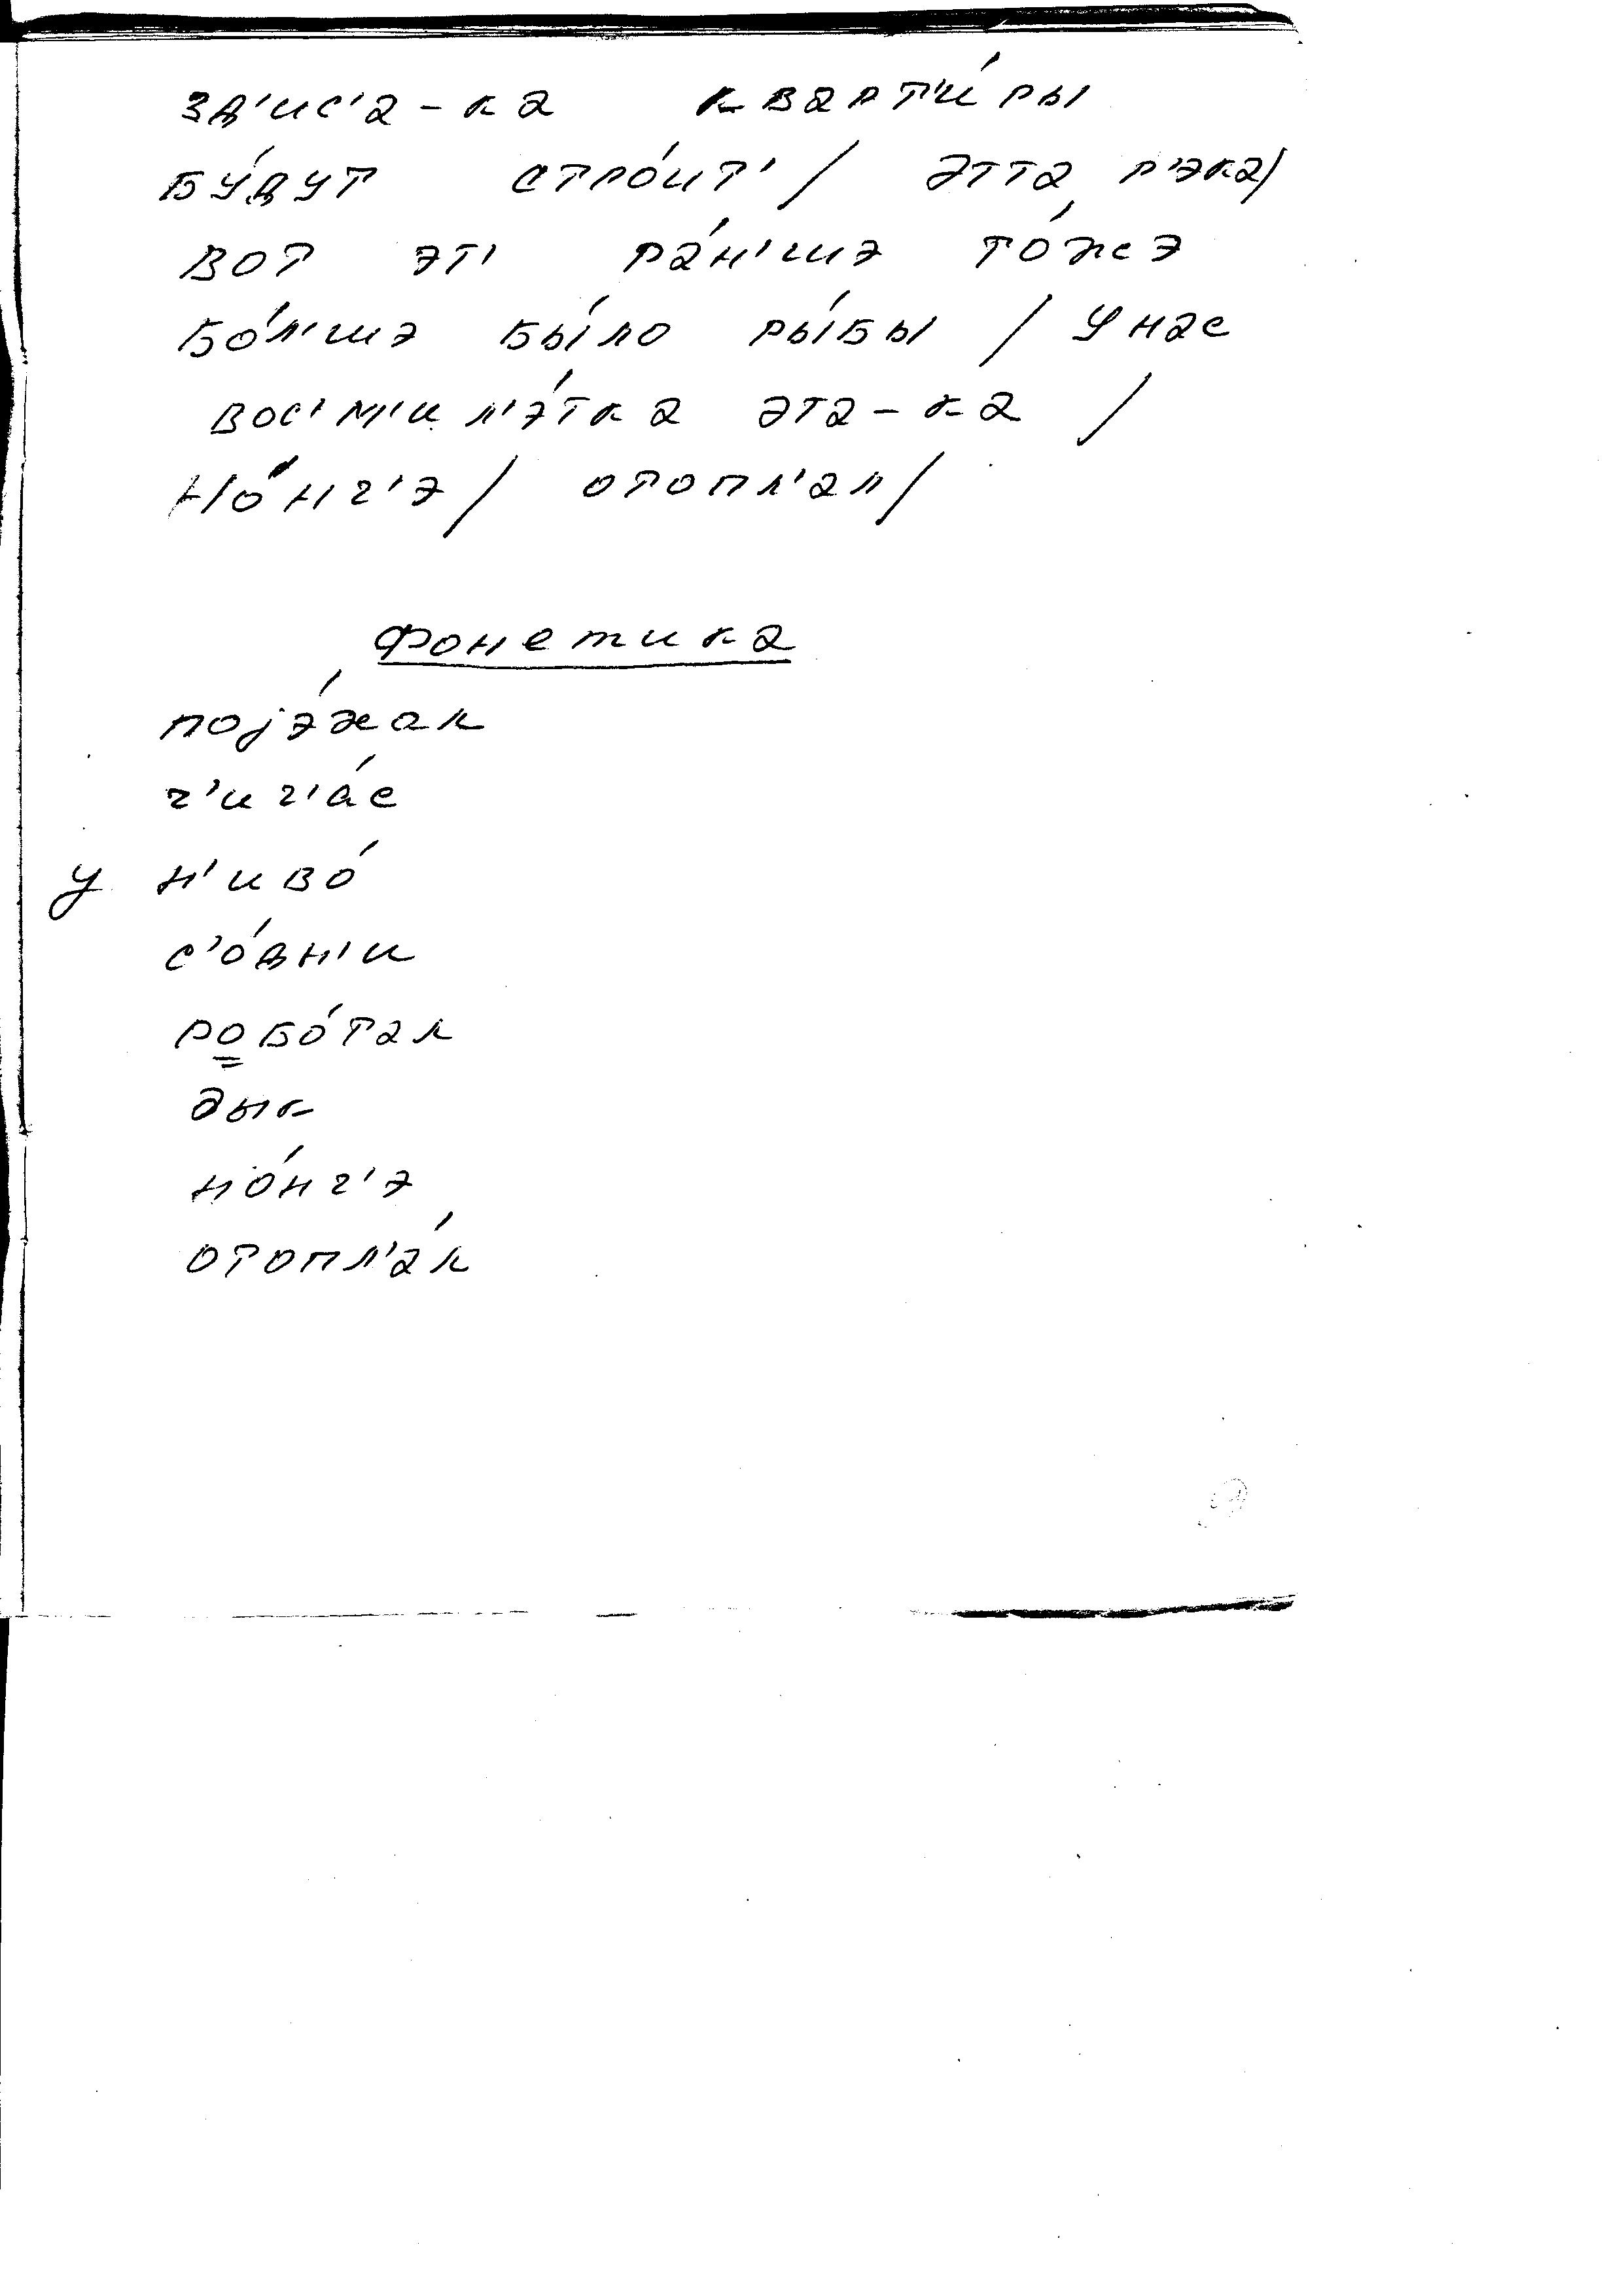 зд'ис'а-ка кварти́ры
бу́дут стро́ит' / этта р'эка/
вот эт' ра́н'шэ то́жэ
бо́л'шэ бы́ло ры́бы / у нас
вос'м'ил'э́тка эта-ка /
но́нч'э / отопл'ал /
фонетика
појэ́жал
ч'ич'а́с
у н'иво́
с'о́дн'и
робо́тал
дык
но́нч'э
отопл'а́л